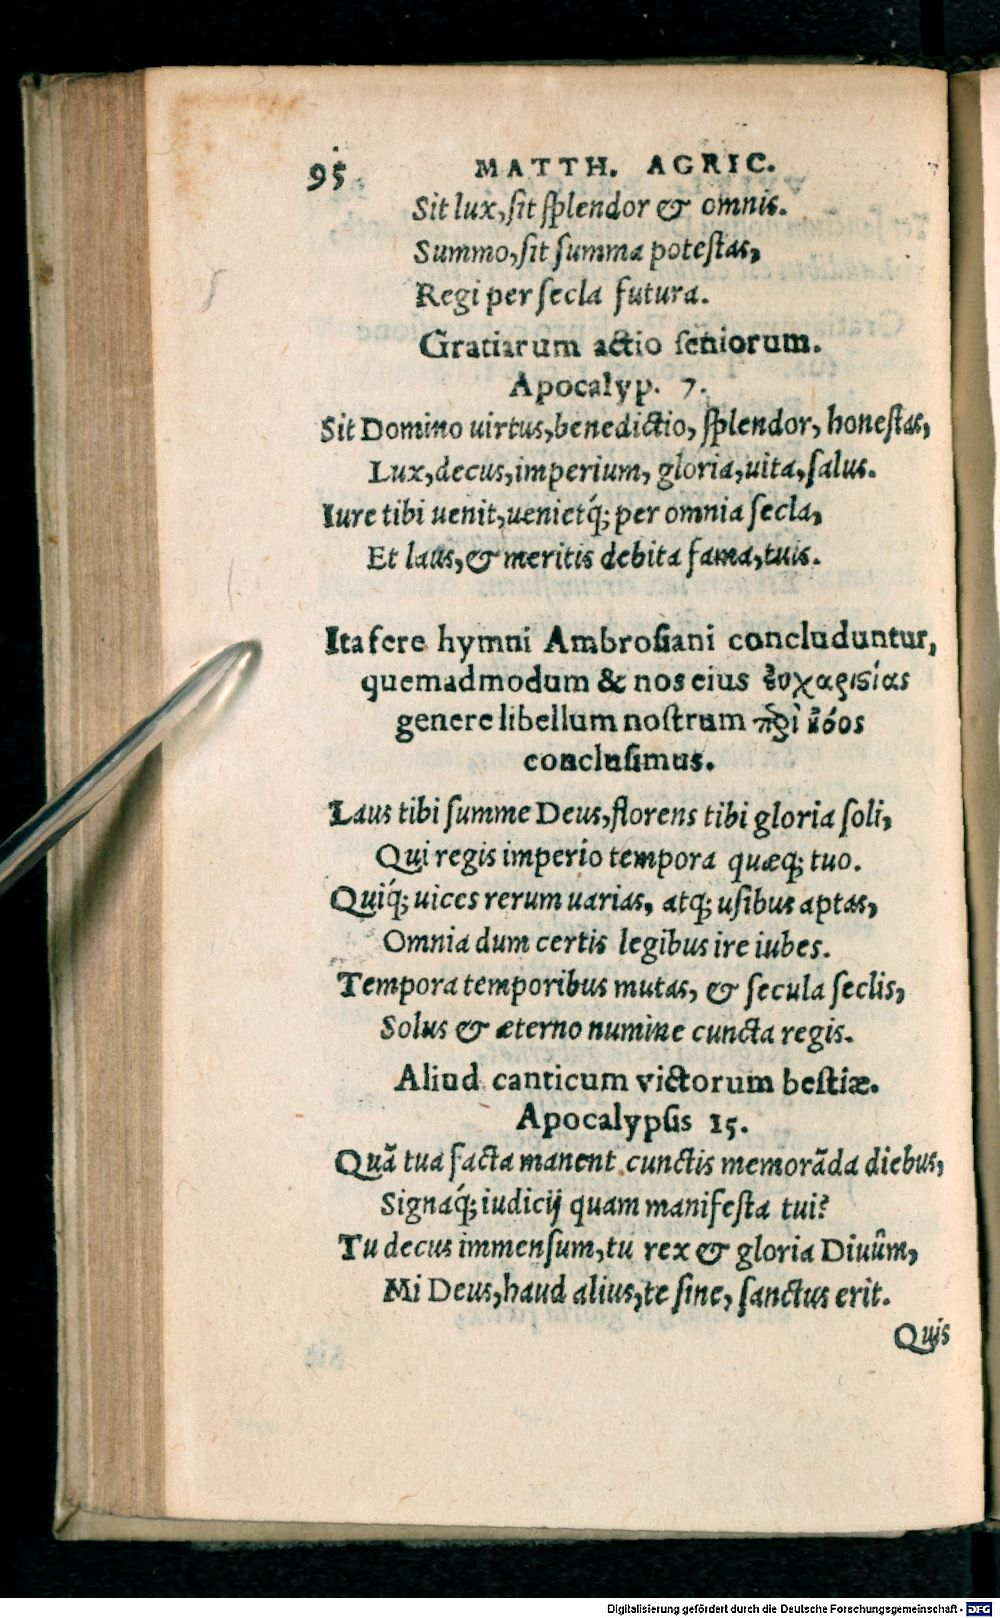 95 MATTH. AGRIC.
Sit lux, sit splendor & omnis.
Summo, sit summa potestas,
Regi per secla futura.
Gratiarum actio seniorum.
Apocalyp. 7.
Sit Domino uirtus, benedictio, splendor, honestas,
Lux, decus, imperium, gloria, uita, salus.
Iure tibi uenit, uenietq́; per omnia secla,
Et laus, & meritis debita fama, tuis.
Ita fere hymni Ambrosiani concluduntur,
quemadmodum & nos eius ἐυχαριστίας
genere libellum nostrum
conclusimus.
Laus tibi summe Deus, florens tibi gloria soli,
Qui regis imperio tempora quæq; tuo.
Quiq́; uices rerum uarias, atq; usibus aptas,
Omnia dum certis legibus ire iubes.
Tempora temporibus mutas, & secula seclis,
Solus & æterno numine cuncta regis.
Aliud canticum victorum bestiæ.
Apocalypsis 15.
Quã tua facta manent cunctis memorãda diebus,
Signaq́; iudicij quam manifesta tui?
Tu decus immensum, tu rex & gloria Diuûm,
Mi Deus, haud alius, te sine, sanctus erit.
Quis
Digitalisierung gefördert durch die Deutsche Forschungsgemeinschaft - DFG